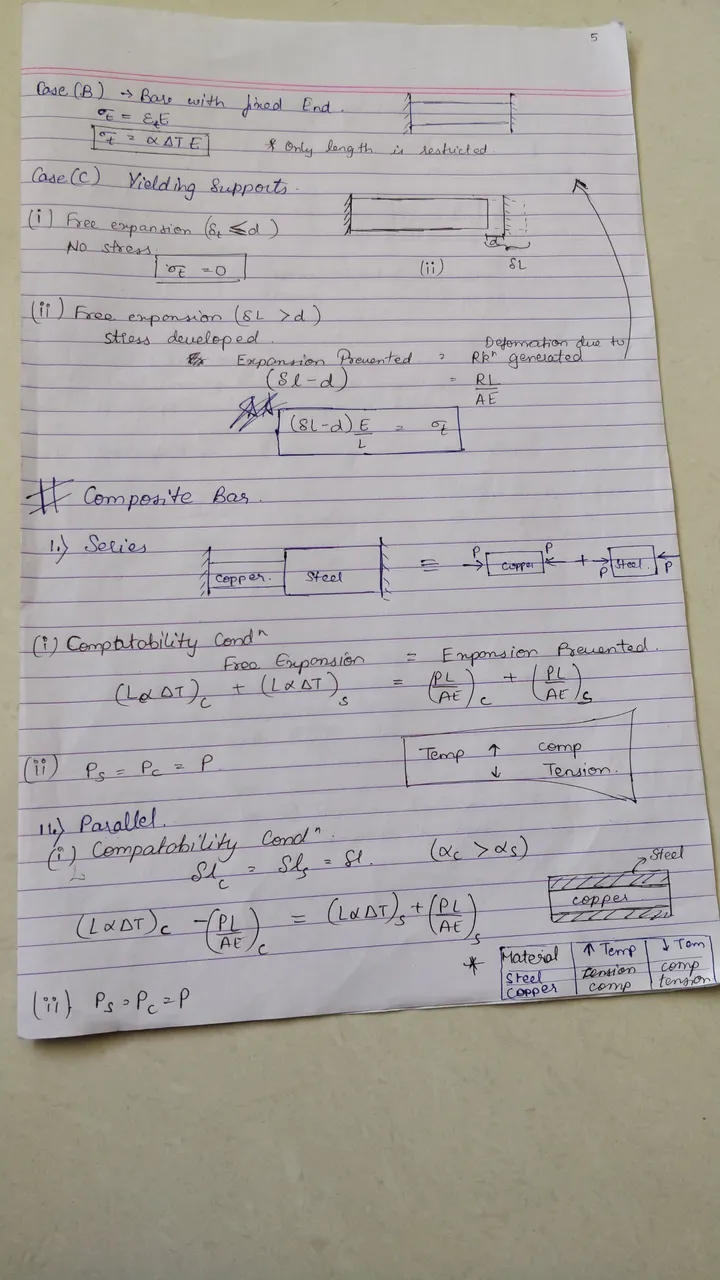 5
Case(B) → Bar with fixed End.
σt = εt E
σt = α ΔT E * Only length is restricted
Case(C) Yielding Supports.
(i) Free expansion (δt ≤ d)
No stress
σt = 0
d
(ii) δL
(ii) Free expansion (δL > d)
stress developed.
Expansion Prevented = Deformation due to Rxⁿ generated
(δl-d) = RL/AE
(δL-d) E/L = σt
# Composite Bar.
1.) Series
copper. Steel ≡ P → copper ← P + → P Steel. ← P
(i) Comptatability Condⁿ
Free Expansion = Expansion Prevented.
(LαΔT)c + (LαΔT)s = (PL/AE)c + (PL/AE)s
(ii) Ps = Pc = P
Temp ↑ comp
↓ Tension.
11.) Parallel.
(i) Compatability Condⁿ.
δlc = δls = δl. (αc > αs)
Steel
copper
(LαΔT)c - (PL/AE)c = (LαΔT)s + (PL/AE)s
* Material ↑ Temp ↓ Tem
Steel tension comp
Copper comp tension
(ii) Ps = Pc = P